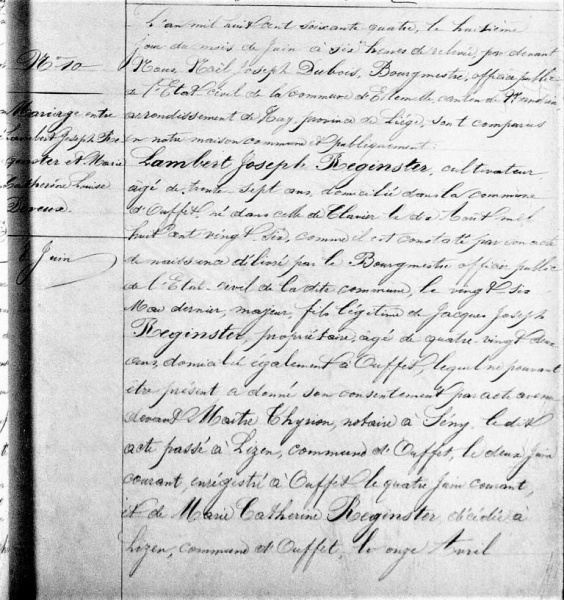 N° 10
Mariage entre
Lambert Joseph Re
ginster et Marie
Catherine Louise
Deveux.
8 Juin
L'an mil huit cent soixante quatre, le huitième
jour du mois de Juin à six heures de relevée, par devant
Nous, Joseph Dubois, Bourgmestre, officier public
de l'Etat civil de la commune d'Ellemelle, canton de Nandrin
arrondissement de Huy, province de Liége, sont comparus
en notre maison commune et publiquement
Lambert Joseph Reginster, cultivateur
âgé de trente-sept ans, domicilié dans la commune
d'Ouffet, né dans celle de Clavier le dix Août mil
huit cent vingt six, comme il est constaté par son acte
de naissance délivré par le Bourgmestre officier public
de l'Etat civil de la dite commune, le vingt six
Mai dernier, majeur, fils légitime de Jacques Joseph
Reginster, propriétaire, âgé de quatre vingt deux
ans, domicilié également à Ouffet, lequel ne pouvant
être présent a donné son consentement par acte avenu
devant Maître Thyrion, notaire à Seny, le dit
acte passé à Lizen, commune d'Ouffet, le deux Juin
courant, enrégistré à Ouffet le quatre Juin courant,
et de Marie Catherine Reginster, décédée à
Lizen, commune d'Ouffet, le onze Avril